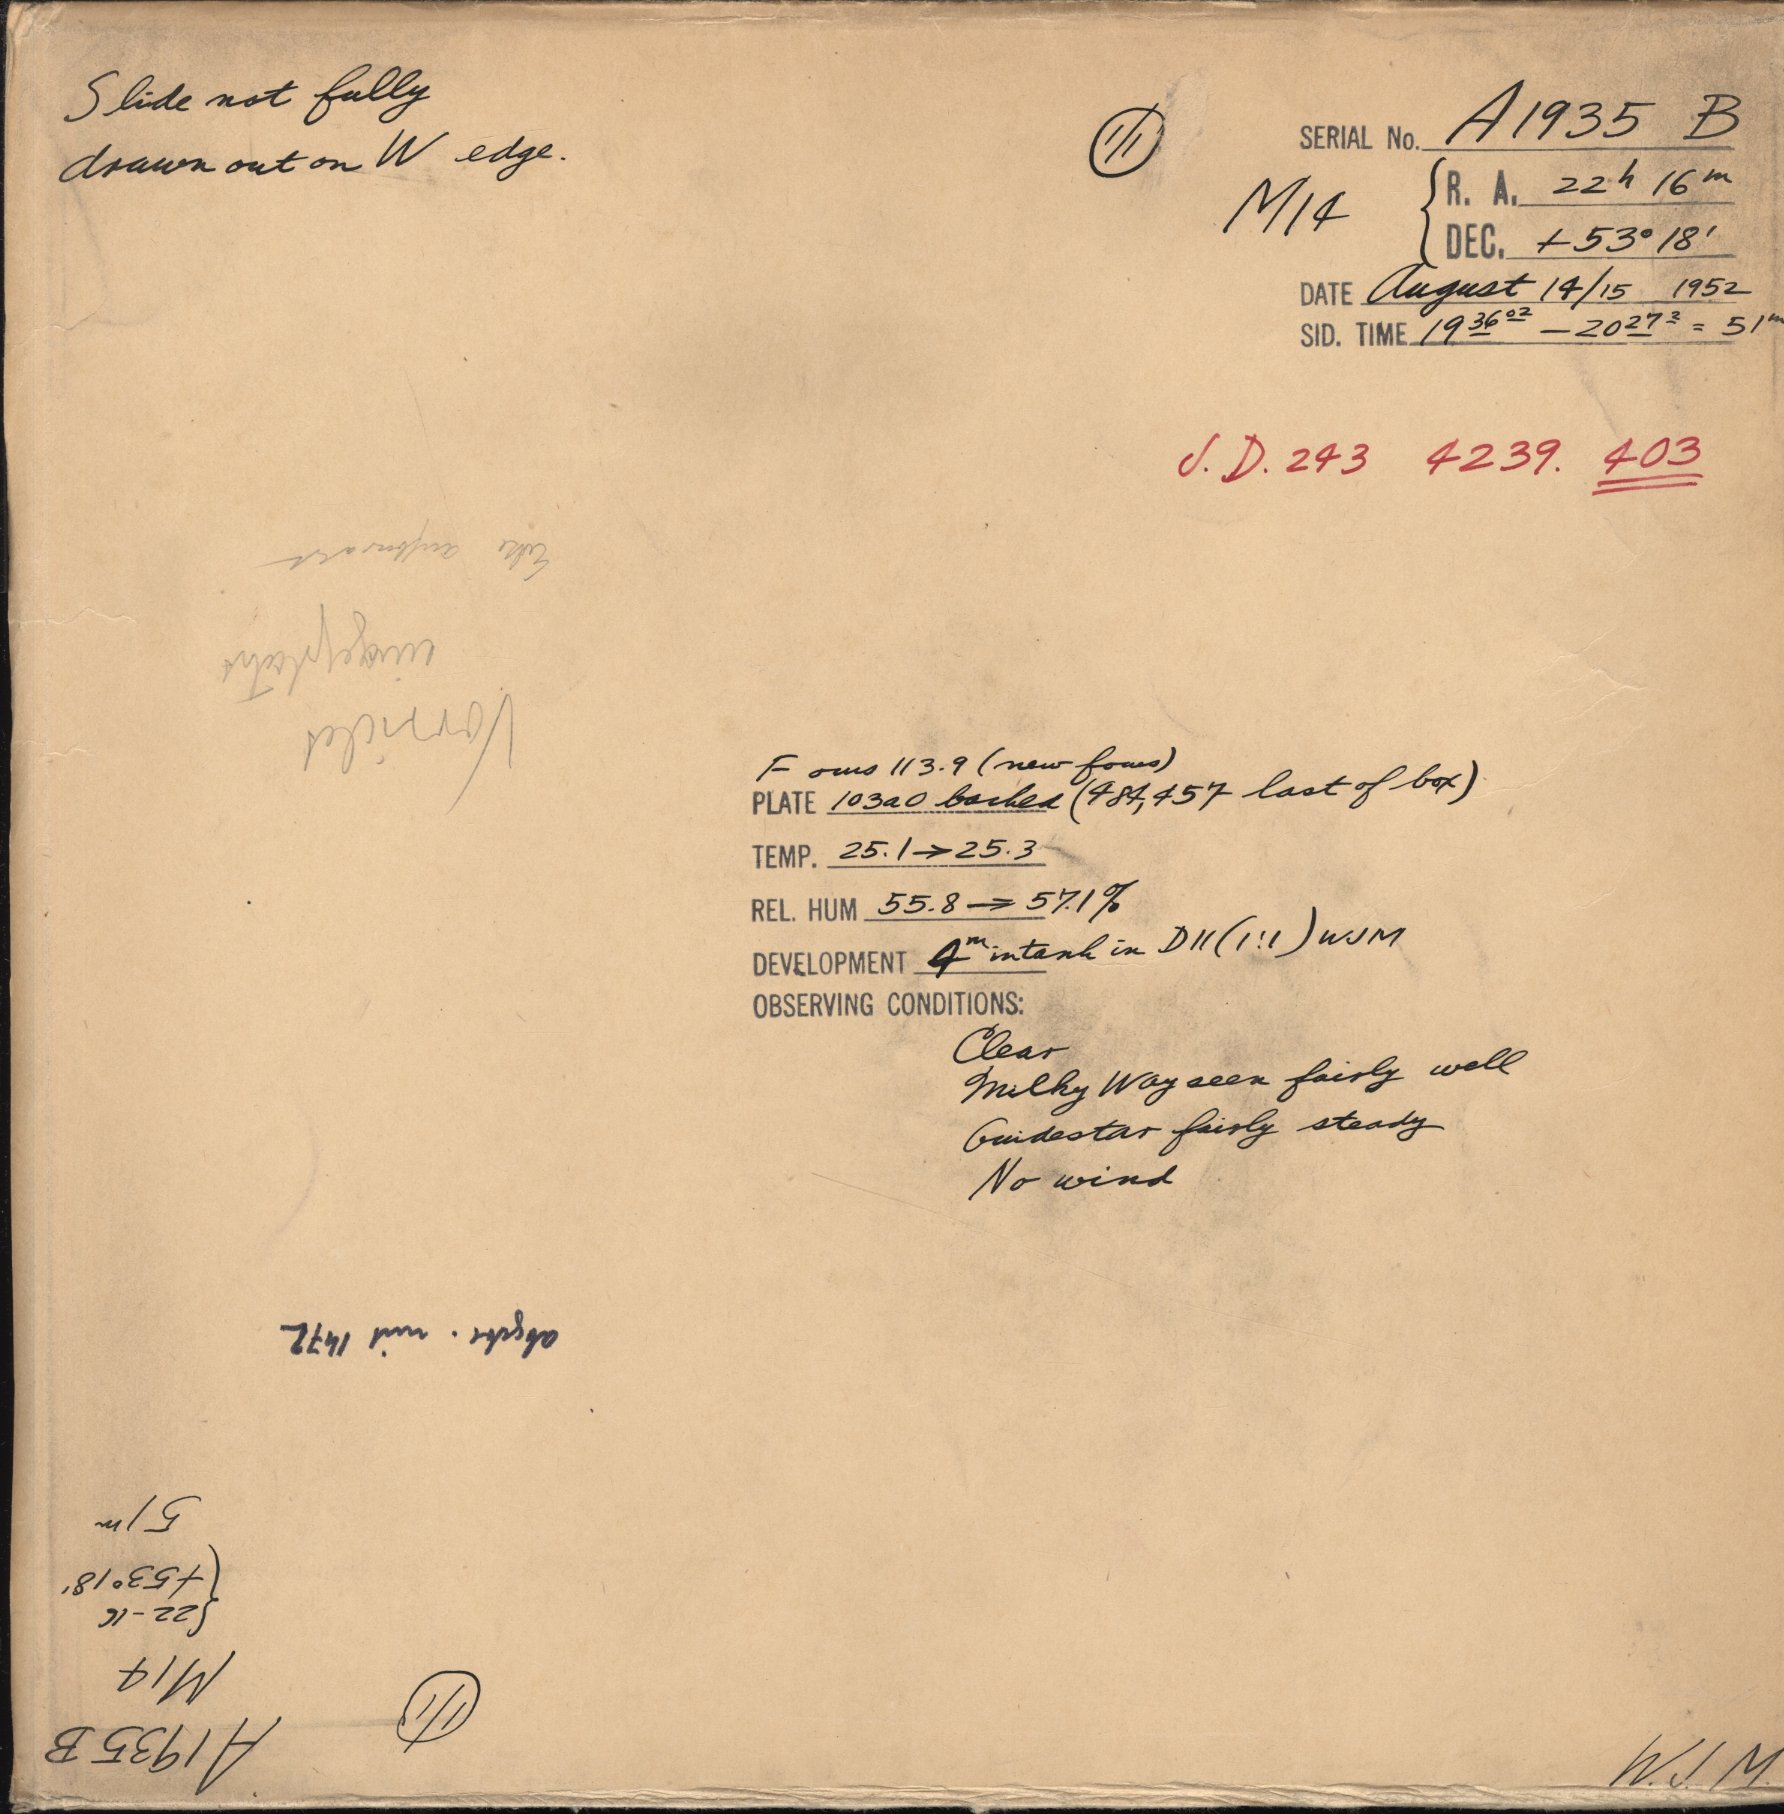 Slide not fully
drawn out on W edge.
III
SERIAL No. A1935 B
M14
R. A. 22h 16m
DEC. +53° 18'
DATE August 14/15 1952
SID. TIME 19 36 02 — 20 27 2 = 51m
J. D. 243 4239. 403
Vorsicht
Focus 113.9 (new focus)
PLATE 103aO backed (484,457 last of box)
TEMP. 25.1 → 25.3
REL. HUM 55.8 → 57.1%
DEVELOPMENT 4m in tank in D11 (1:1) WJM
OBSERVING CONDITIONS:
Clear
Milky Way seen fairly well
Guidestar fairly steady
No wind
mit 1472
A1935B
M14
{22-16
+53° 18'
51m
III
W. J. M.